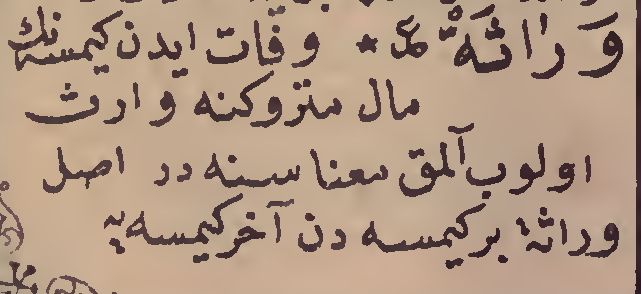 وَرَاثَةْ * وفات ایدن کیمسه‌نك
مال متروکنه وارث
اولوب آلمق معناسنه در اصل
وراثة بر کیمسه دن آخر کیمسه یه